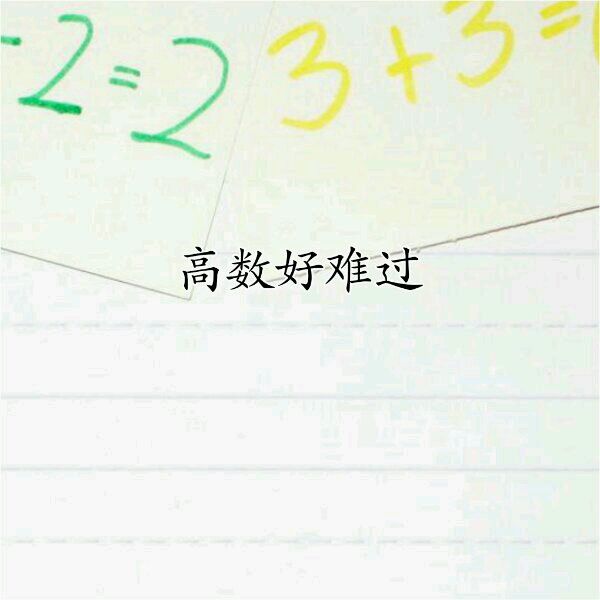 -2=2
3+3=
高数好难过